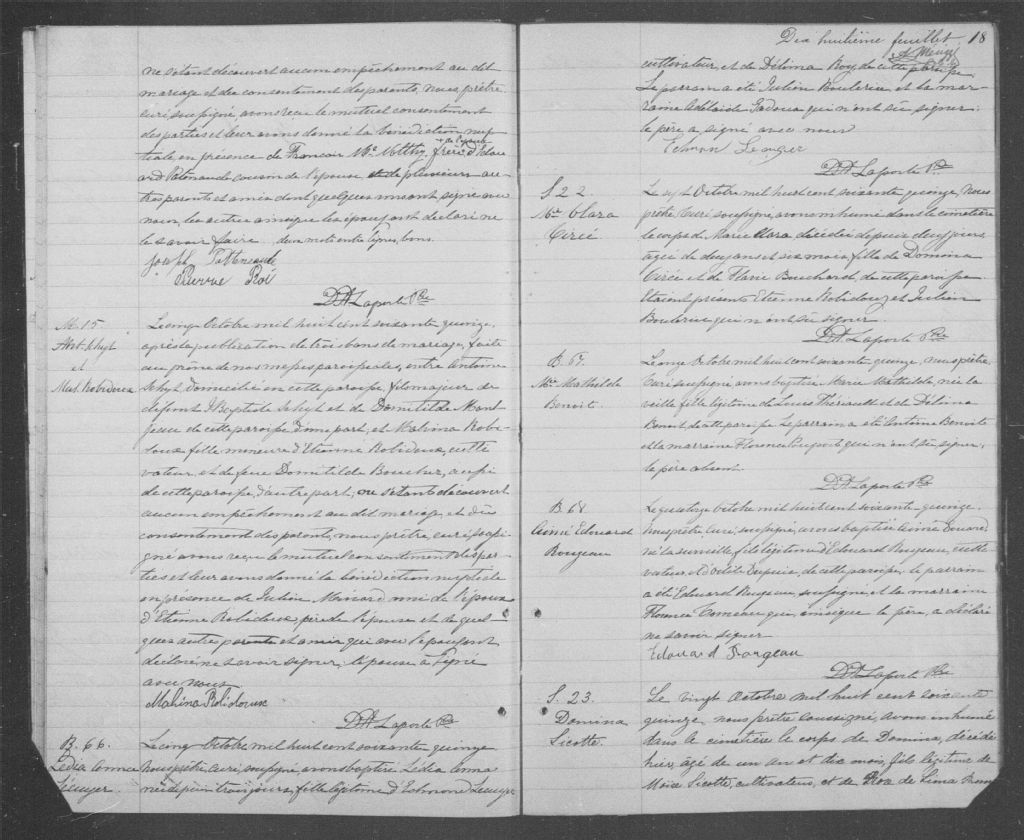 ne s'étant découvert aucun empêchement au dit
mariage et du consentement des parents, nous prêtre
curé soussigné, avons reçu le mutuel consentement
des parties et leur avons donné la bénédiction nup-
tiale, en présence de Francois frère de l'époux d'Edou-
ard cousin de l'épouse et de plusieurs au-
tres parents et amis dont quelques uns ont signé avec
nous, les autres ainsi que les époux ont déclaré ne
le savoir faire. deux mots entre lignes, bons.
Joseph
Pierre Roi
D.A. Laporte Ptre
M. 15
Ant. Schyt
et
Robidoux
Le onze Octobre mil huit cent soixante quinze,
après la publication de trois bans de mariage, faite
au prône de nos messes paroissiales, entre Antoine
domicilié en cette paroisse, fils majeur de
défunt J. Baptiste et de Domitilde Mont-
jeau de cette paroisse d'une part; et Malvina Robi-
doux fille mineure d'Etienne Robidoux, culti
vateur, et de feue Domitilde Boucher, aussi
de cette paroisse, d'autre part; ne s'étant découvert
aucun empêchement au dit mariage, et du
consentement des parents, nous prêtre, curé soussi-
gné avons reçu le mutuel consentement des par-
ties et leur avons donné la bénédiction nuptiale
en présence de Julien Ménard ami de l'époux
d'Etienne Robidoux père de l'épouse et de quel-
ques autres parents et amis qui avec l'époux ont
déclaré ne savoir signer; l'épouse a signé
avec nous
Malvina Robidoux
D.A. Laporte Ptre
B. 66.
Lédia Anna
Le cinq Octobre mil huit cent soixante quinze
nous prêtre, curé, soussigné avons baptisé Lédia Anna
née depuis trois jours, fille légitime d'Edmond
Dix huitième feuillet 18
cultivateur, et de Délima Roy de cette paroisse
Le parrain a été Julien Bouterie et la mar-
raine Adélaide Gadoua qui n'ont su signer;
le père a signé avec nous
D.A. Laporte Ptre
S. 22
Mie Clara
Cirée
Le sept Octobre mil huit cent soixante quinze, Nous
prêtre, Curé soussigné, avons inhumé dans le cimetière
le corps de Marie Clara, décédée depuis deux jours,
agée de deux ans et six mois, fille de Domina
Cirée et de Flavie Bouchard, de cette paroisse.
Etaient présents Etienne Robidoux et Julien
Bouterie qui n'ont su signer
D.A. Laporte Ptre
B. 67.
Mie Mathilde
Benoit.
Le onze Octobre mil huit cent soixante quinze, nous prêtre
Curé soussigné avons baptisé Marie Mathilde, née la
veille fille légitime de Louis Thériault et de Délina
Benoit de cette paroisse Le parrain a été Antoine Benoit
et la marraine Florence qui n'ont su signer;
le père absent.
D.A. Laporte Ptre
B. 68
Aimé Edouard
Rougeau
Le quatorze Octobre mil huit cent soixante quinze.
Nous prêtre, Curé, soussigné, avons baptisé Aimé Edouard
né la surveille, fils légitime d'Edouard Rougeau, culti
vateur, et d'Odile Dupuis, de cette paroisse. le parrain
a été Edouard Rougeau, soussigné, et la marraine
Florence Comeau qui, ainsi que le père, a déclaré
ne savoir signer
Edouard Rougeau
D.A. Laporte Ptre
S. 23
Domina
Sicotte.
Le vingt Octobre mil huit cent soixante
quinze, nous prêtre soussigné, avons inhumé
dans le cimetière le corps de Domina, décédé
hier, agé de un an et dix mois, fils légitime de
Moïse Sicotte, cultivateur, et de Rose de Lima